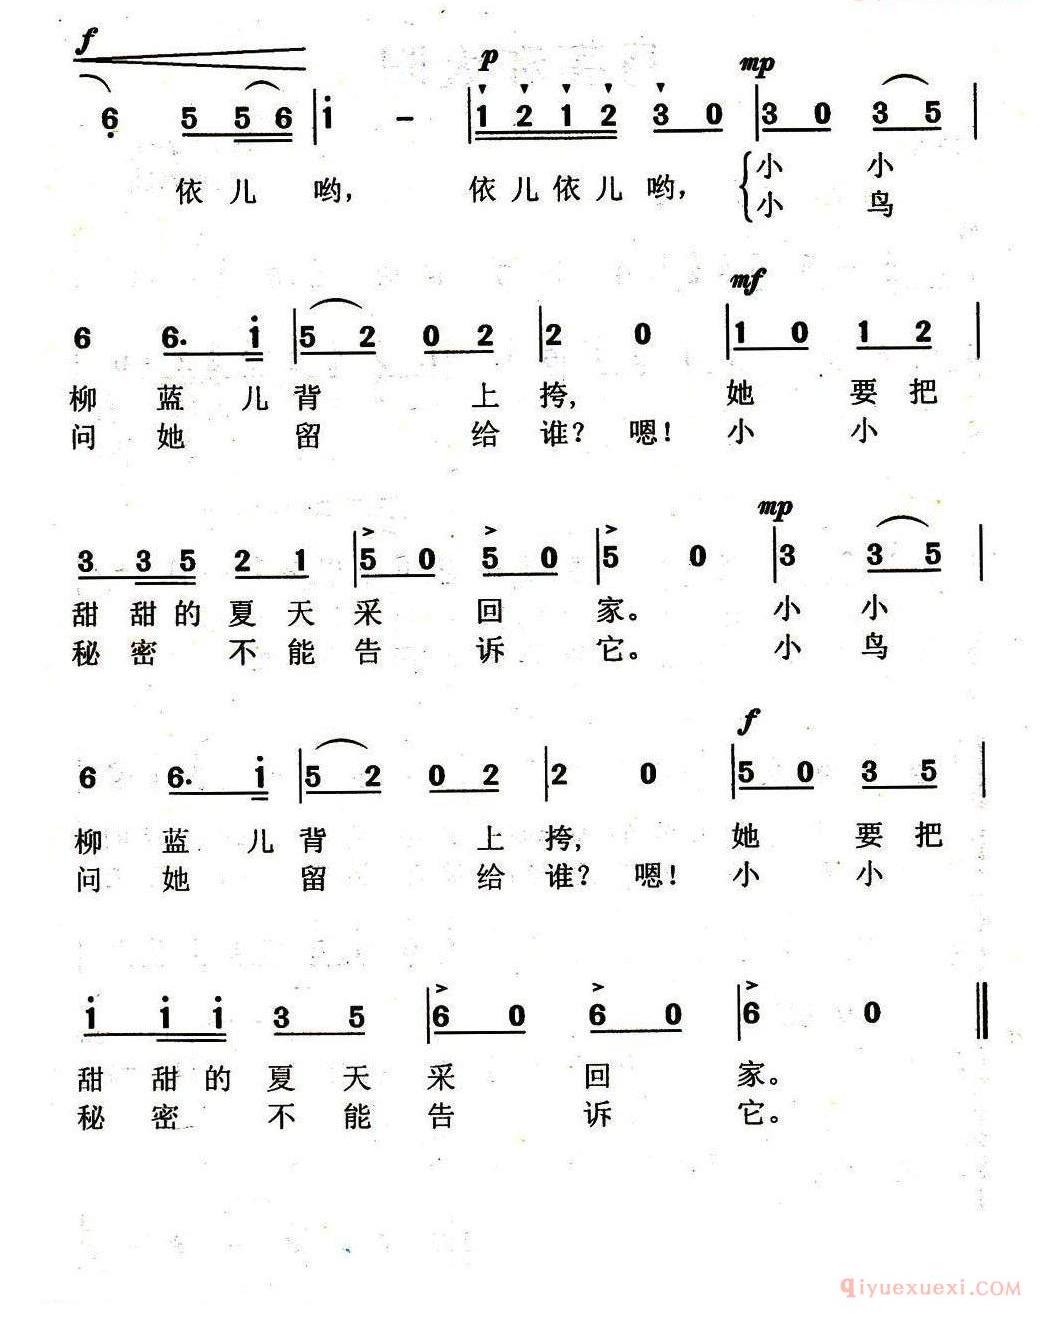 f p mp
6 5 5 6 | i - | 1 2 1 2 3 0 | 3 0 3 5 |
依 儿 哟, 依 儿 依 儿 哟, 小 小
小 鸟
mf
6 6. i | 5 2 0 2 | 2 0 | 1 0 1 2 |
柳 蓝 儿 背 上 挎, 她 要 把
问 她 留 给 谁? 嗯! 小 小
mp
3 3 5 2 1 | 5 0 5 0 | 5 0 | 3 3 5 |
甜 甜 的 夏 天 采 回 家。 小 小
秘 密 不 能 告 诉 它。 小 鸟
f
6 6. i | 5 2 0 2 | 2 0 | 5 0 3 5 |
柳 蓝 儿 背 上 挎, 她 要 把
问 她 留 给 谁? 嗯! 小 小
i i i 3 5 | 6 0 6 0 | 6 0 ||
甜 甜 的 夏 天 采 回 家。
秘 密 不 能 告 诉 它。
qiyuexuexi.COM